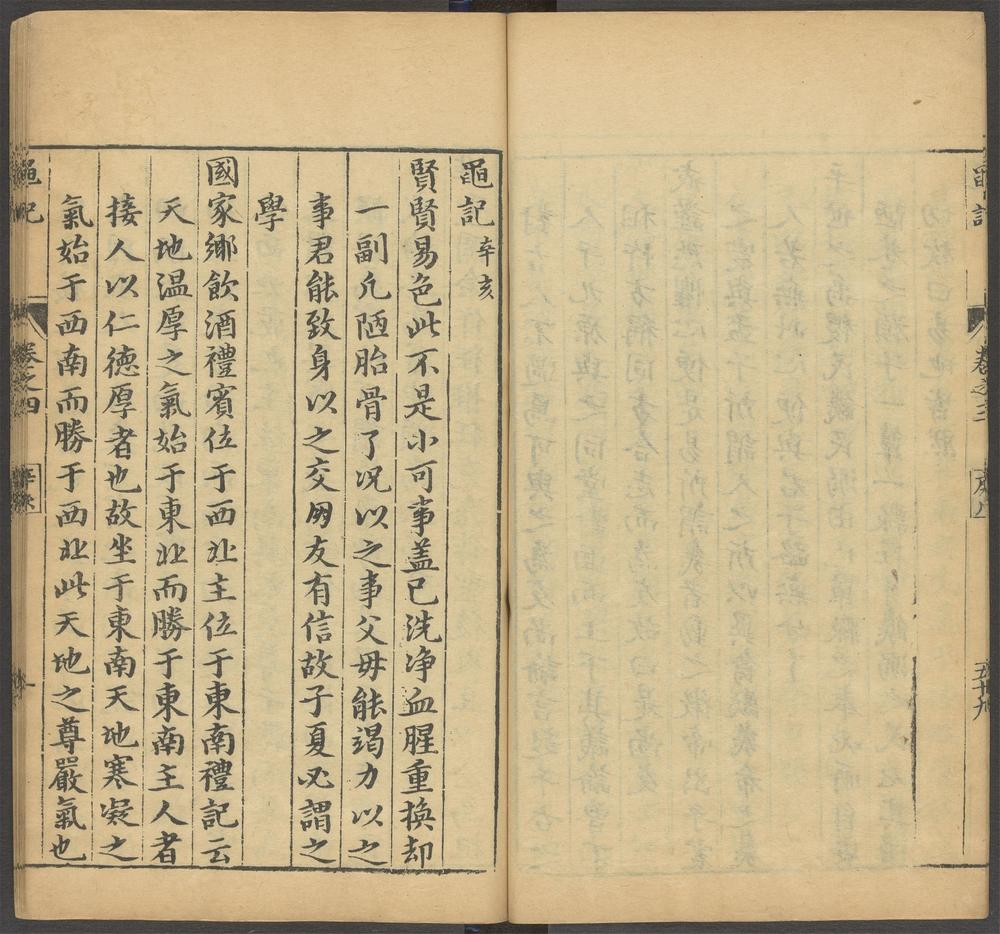 黽記
卷之三
五十九
黽記 辛亥
賢賢易色此不是小可事蓋已洗净血腥重換却
一副凡陋胎骨了况以之事父毋能竭力以之
事君能致身以之交朋友有信故子夏必謂之
學
國家鄉飲酒禮賓位于西北主位于東南禮記云
天地温厚之氣始于東北而勝于東南主人者
接人以仁德厚者也故坐于東南天地寒凝之
氣始于西南而勝于西北此天地之尊嚴氣也
黽記
卷之四